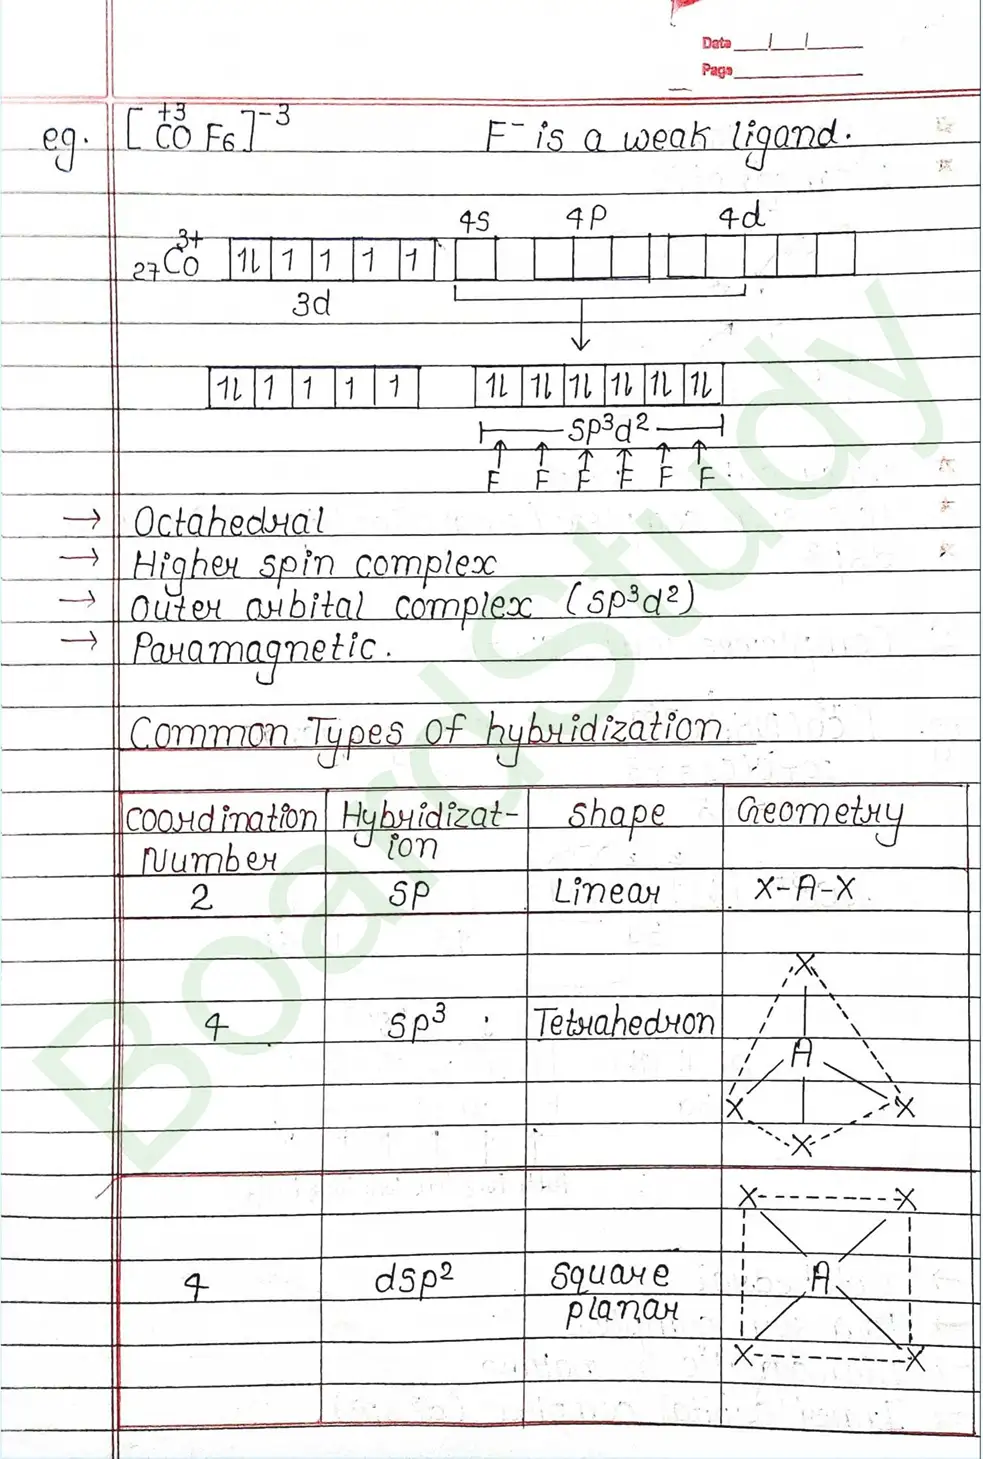 Date
Page
eg. [CO⁺³ F₆]⁻³ F⁻ is a weak ligand.
4s 4p 4d
₂₇Co³⁺ 1l 1 1 1 1
3d
1l 1 1 1 1 1l 1l 1l 1l 1l 1l
sp³d²
F F F F F F
→ Octahedral
→ Higher spin complex
→ Outer orbital complex (sp³d²)
→ Paramagnetic.
Common Types of hybridization
Coordination Hybridizat- Shape Geometry
Number ion
2 SP Linear X-A-X
X
4 sp³ Tetrahedron
A
X X
X
X X
4 dsp² Square A
planar
X X
BoardStudy